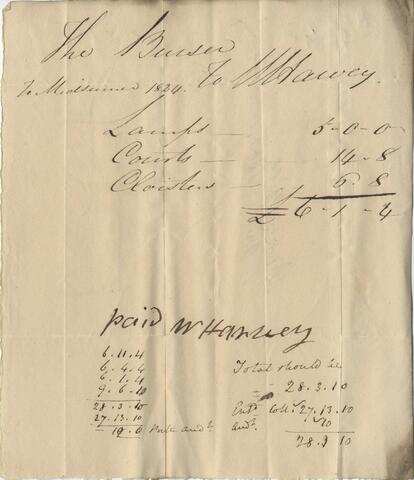 The Burser
To Midsumer 1824. To W Harvey.
Lamps — 5-0-0
Courts — 14-8
Cloisters — 6.8
£ 6-1-4
paid W Harvey
6.11.4
6.4.4
6.1.4
9.6.10
28.3.10
27.13.10
10.0
Total should be
28.3.10
Entd Coll. 27.13.10
10
28.3.10